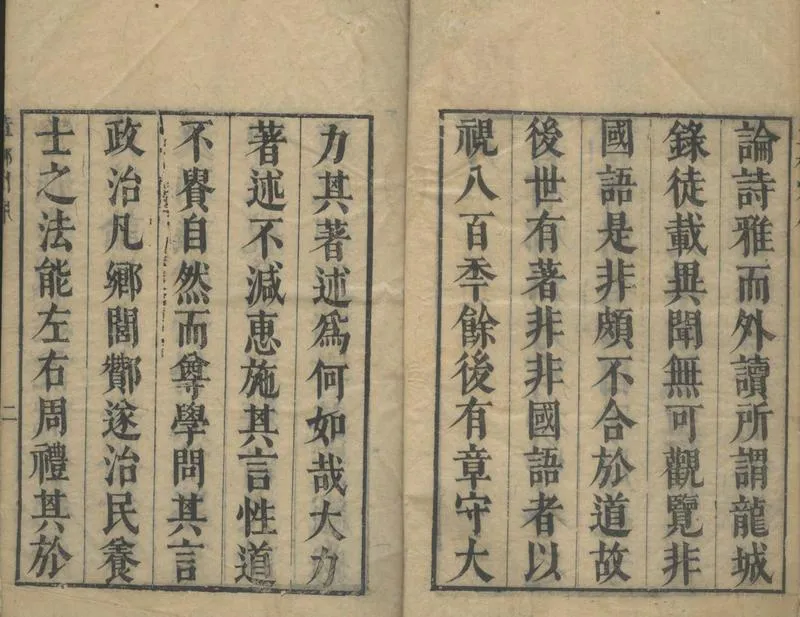 論詩雅而外讀所謂龍城
錄徒載異聞無可觀覽非
國語是非頗不合於道故
後世有著非非國語者以
視八百秊餘後有章守大
力其著述為何如哉大力
著述不減惠施其言性道
不貲自然而尊學問其言
政治凡鄉閭酇遂治民養
士之法能左右周禮其於
二